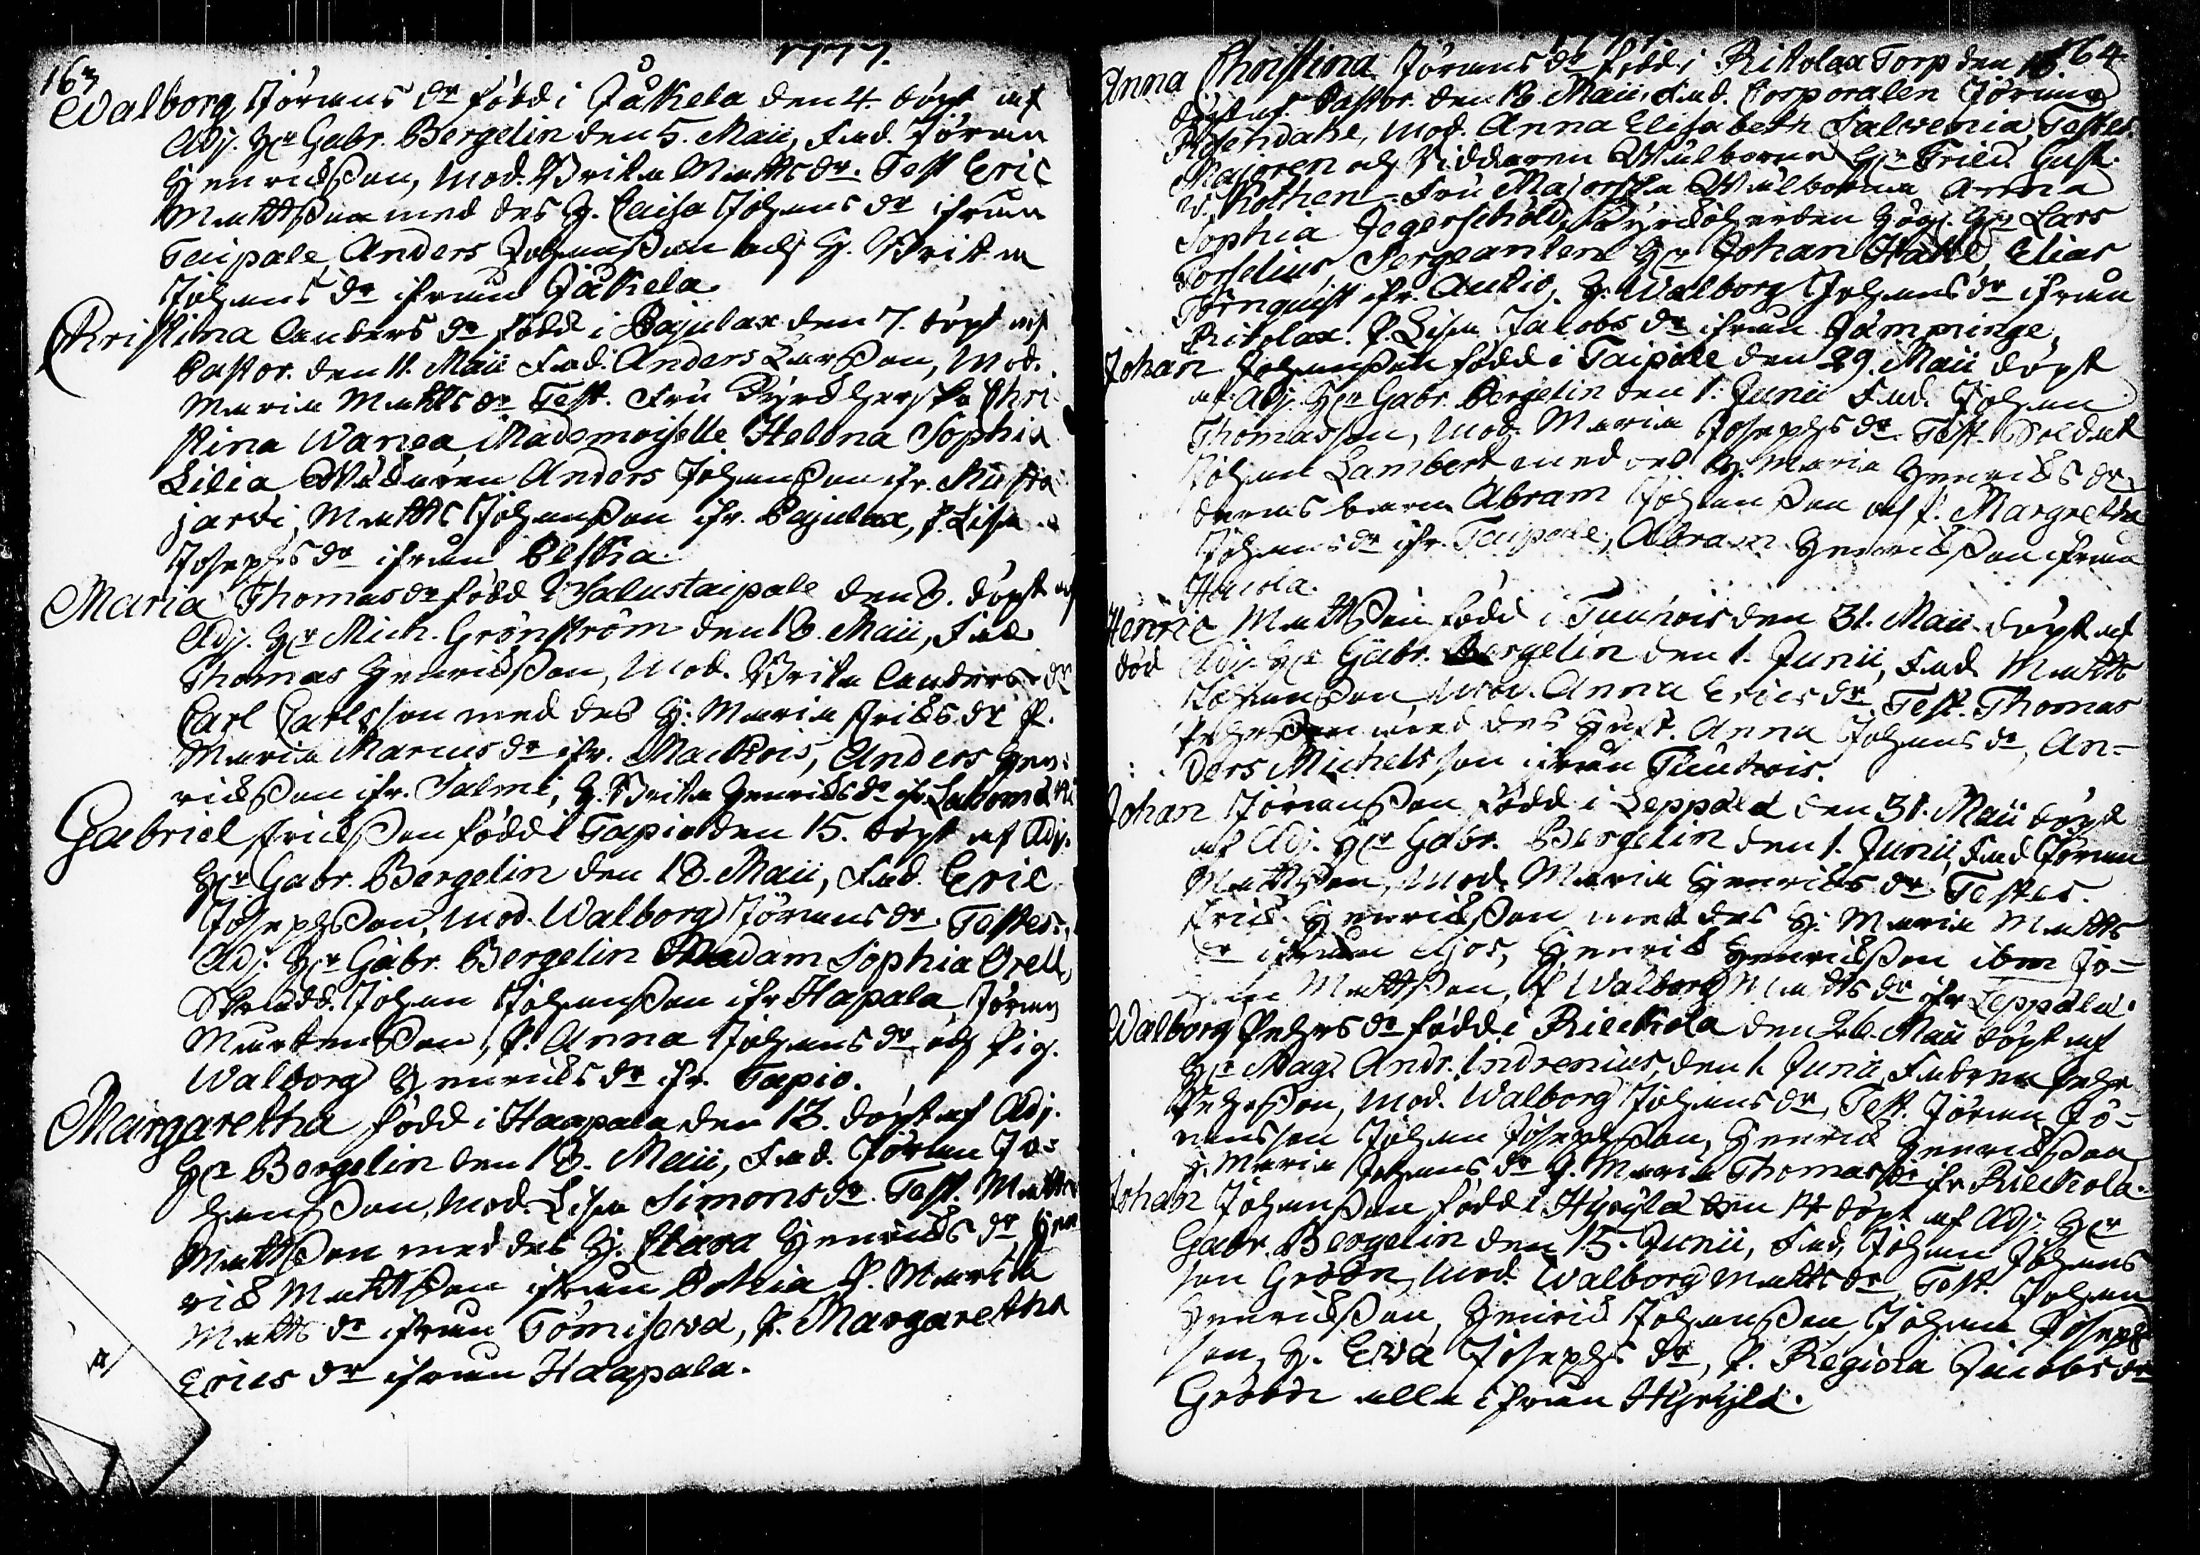 1777.
163
Walborg Jörans dr född i Jåkela den 4. döpt af
Adj. Hr Gabr. Bergelin den 5. Maii, Fad. Jöran
Henrichsson, Mod. Brita Matts dr. Test Eric
Mattsson med des H. Caisa Johans dr ifrån
Taipale, Anders Johansson och H. Brita
Johans dr ifrån Jåkela.
Christina Anders dr född i Pajulax den 7. döpt af
Pastor. den 11. Maii Fad. Anders Larsson, Mod.
Maria Matts dr Test. Fru Kyrckherskan Chri-
stina Wanæa, Mademoiselle Helena Sophia
Lilia, Anders Johansson ifr.
jarvi, Matts Johansson ifr. Pajulax, P. Lisa
Josephs dr ifrån
Maria Thomas dr född i Salustaipale den 8. döpt af
Adj. Hr Mich. Grönström den 18. Maii, Fad
Thomas Henrichsson, Mod. Brita Anders dr
Carl Carlsson med des H. Maria Erics dr P.
Maria Marcus dr ifr. Mackois, Anders Hen-
richsson ifr. Salmi, H. Brita Henrichs dr ifr.
Gabriel Erichsson född i Tapio den 15. döpt af Adj.
Hr Gabr. Bergelin den 18. Maii, Fad. Eric
Josephsson, Mod. Walborg Jörans dr. Testes.
Adj. Hr Gabr. Bergelin Madam Sophia Orell,
Johan Johansson ifr Hapala, Jöran
Mårtensson, P. Anna Johans dr och Pig.
Walborg Henrichs dr ifr. Tapio.
Margaretha född i Haapala den 13. döpt af Adj.
Hr Bergelin den 18. Maii, Fad. Jöran Jo-
hansson, Mod. Lisa Simons dr. Test. Matts
Mattsson med des H. Clara Henrichs dr Hen-
rich Mattsson ifrån P. Maria
Matts dr ifrån Tömiserva, P. Margaretha
Erics dr ifrån Haapala.
1777.
164
Anna Christina Jörans dr född i Ritolax Torp den
döpt af Pastor. den 18 Maii. Fad. Corporalen Jöran
Mod. Anna Elisabeth Salvenia, Testes.
Majoren och Riddaren Wälborne Hr Fried. Gust.
v. Rothen Fru Majorska Wälborna Anna
Sophia Jegerschöld, Kyrckoherden Hög. Hr Lars
Forselius, Sergeanten Hr Johan Elias
Törnquist ifr. Autio, H. Walborg Johans dr ifrån
Ritolax. P. Lisa Jacobs dr ifrån
Johan Johansson född i Taipale den 29. Maii döpt
af Adj. Hr Gabr. Bergelin den 1. Junii Fad. Johan
Thomasson, Mod. Maria Josephs dr. Test. Soldat
Johan Lambert med des H. Maria Henrichs dr
deras barn Abram Johansson och P. Margretha
Johans dr ifr. Taipale, Abram Henrichsson ifrån
Hauola.
Henric Mattsson född i Tuukois den 31. Maii döpt af
död Adj. Hr Gabr. Bergelin den 1. Junii, Fad Matts
Johansson Mod. Anna Erics dr Test. Thomas
med des Hust. Anna Johans dr, An-
ders Michelsson ifrån Tuukois.
Johan Jöransson född i Leppälä den 31. Maii döpt
af Adj. Hr Gabr. Bergelin den 1. Junii, Fad Jöran
Mattsson, Mod. Maria Henrichs dr. Testes.
Erich Henrichsson med des H. Maria Matts
dr ifrån Henrich Henrichsson ibm Jo-
han Mattsson, P Walborg Matts dr ifr Leppälä.
Walborg Pehrs dr född i Rieckola den 26. Maii döpt af
Hr Mag. Andr. Indrenius, den 1. Junii, Fadren Pehr
Pehrsson, Mod. Walborg Johans dr, Test. Jöran Jö-
ransson Johan Josephsson, Henrich Henrichsson
H. Maria Johans dr P. Maria Thomas dr ifr Rieckola.
Johan Johansson född i Hyrylä den 14 döpt af Adj. Hr
Gabr. Bergelin den 15. Junii, Fad. Johan Johans
son Gröön, Mod. Walborg Matts dr Test. Johan
Henrichsson, Henrich Johansson, Johan Joseph
son, H. Eva Josephs dr, P. Regina Jacobs dr
Gröön alla ifrån Hyrylä.